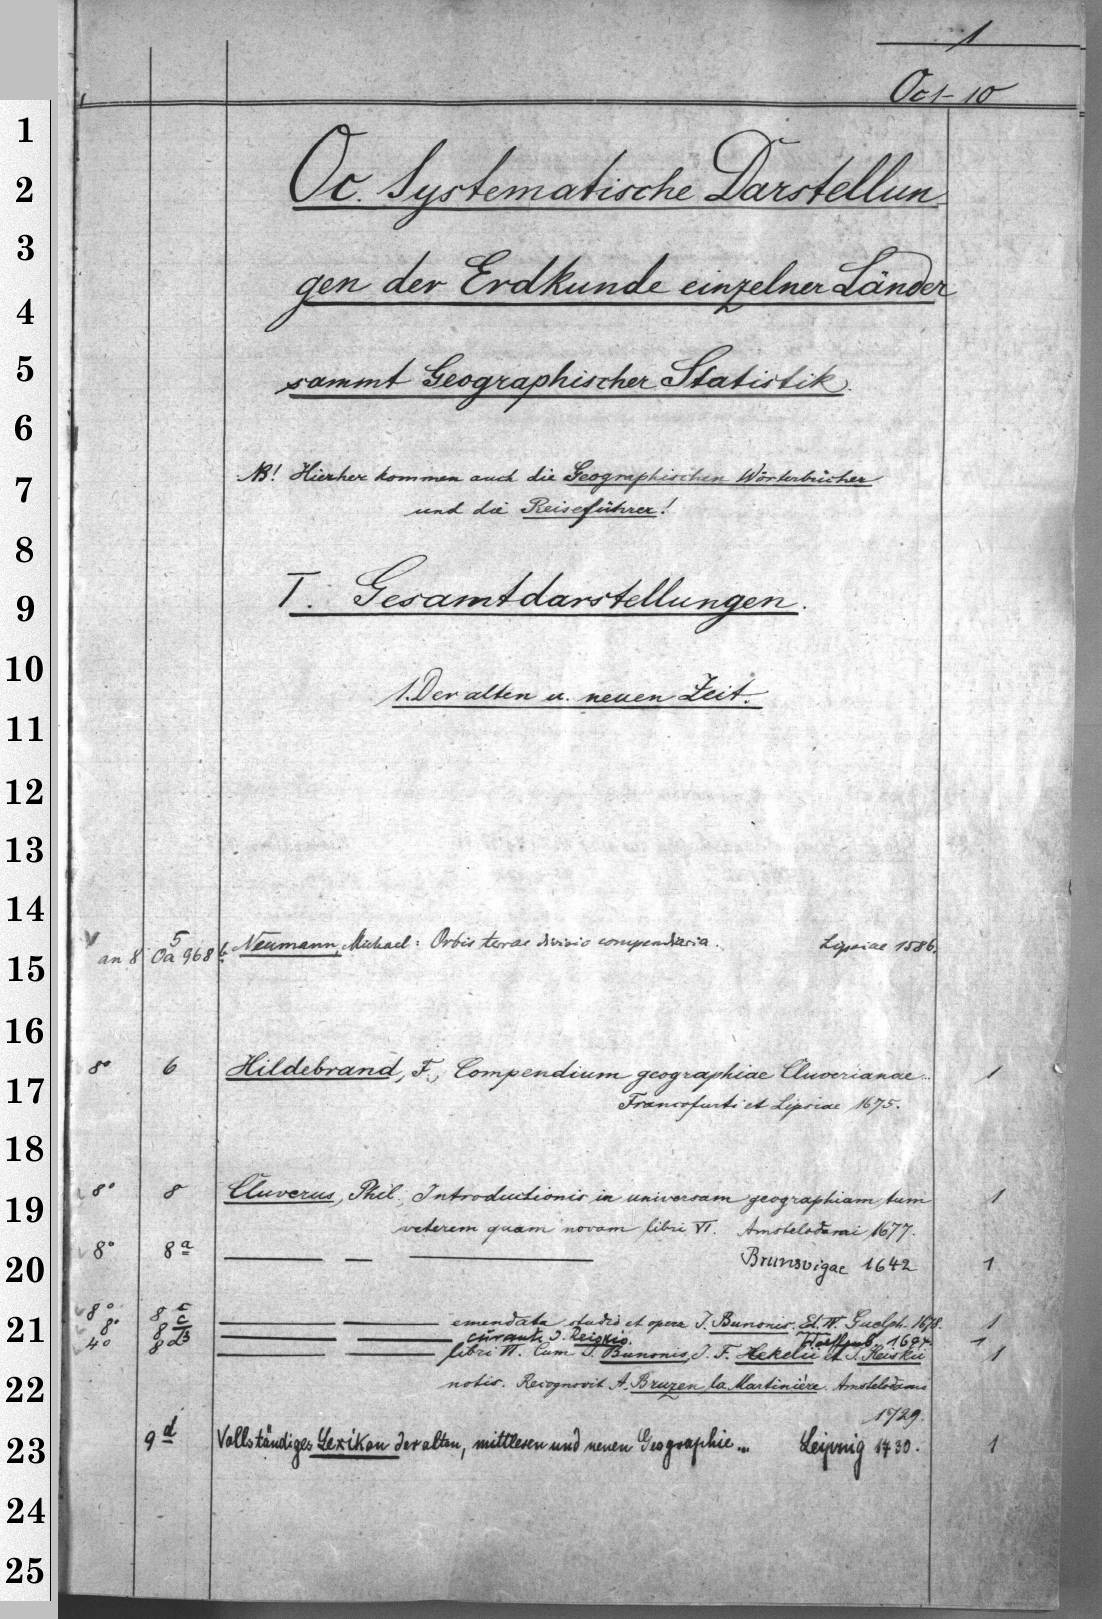 1
Oc 1-10
1
2
3
4
5
6
7
8
9
10
11
12
13
14
15
16
17
18
19
20
21
22
23
24
25
Oc. Systematische Darstellun-
gen der Erdkunde einzelner Länder
sammt Geographischer Statistik.
NB! Hierher kommen auch die Geographischen Wörterbücher
und die Reiseführer!
I. Gesamtdarstellungen.
1. Der alten u. neuen Zeit.
an 8° Oa 968 b Neumann, Michael: Orbis terrae divisio compendiaria. Lipsiae 1586.
5
8° 6 Hildebrand, F., Compendium geographiae Cluverianae.. 1
Francofurti et Lipsiae 1675.
8° 8 Cluverus, Phil., Introductionis in universam geographiam tum 1
veterem quam novam libri VI. Amstelodami 1677.
8° 8a — — — Brunsvigae 1642 1
8° 8c — — emendata studio et opera J. Bunonis. Ed. IV. Guelph. 1678. 1
8° 8c — — curante J. Reiskio. 1694. 1
4° 8 — — libri VI. Cum J. Bunonis, J. F. Hekelii et J. Reiskii 1
notis. Recognovit A. Bruzen la Martinière. Amstelodami
1729.
9d Vollständiges Lexikon der alten, mittleren und neuen Geographie... Leipzig 1730. 1